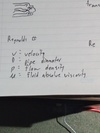 Reynolds
V = velocity
D = Pipe diameter
ρ = flow density
μ = fluid absolute viscosity
Re